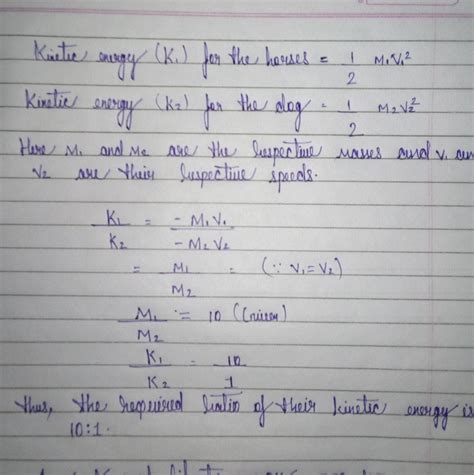 Kinetic energy (K₁) for the horses = 1/2 M₁V₁²
Kinetic energy (K₂) for the dog = 1/2 M₂V₂²
Here M₁ and M₂ are the respective masses and V₁ an
V₂ are their respective speeds.
K₁/K₂ = -M₁V₁/-M₂V₂
= M₁/M₂ = (∵ V₁=V₂)
M₁/M₂ = 10 (Given)
K₁/K₂ = 10/1
thus, the required ratio of their kinetic energy is
10:1.